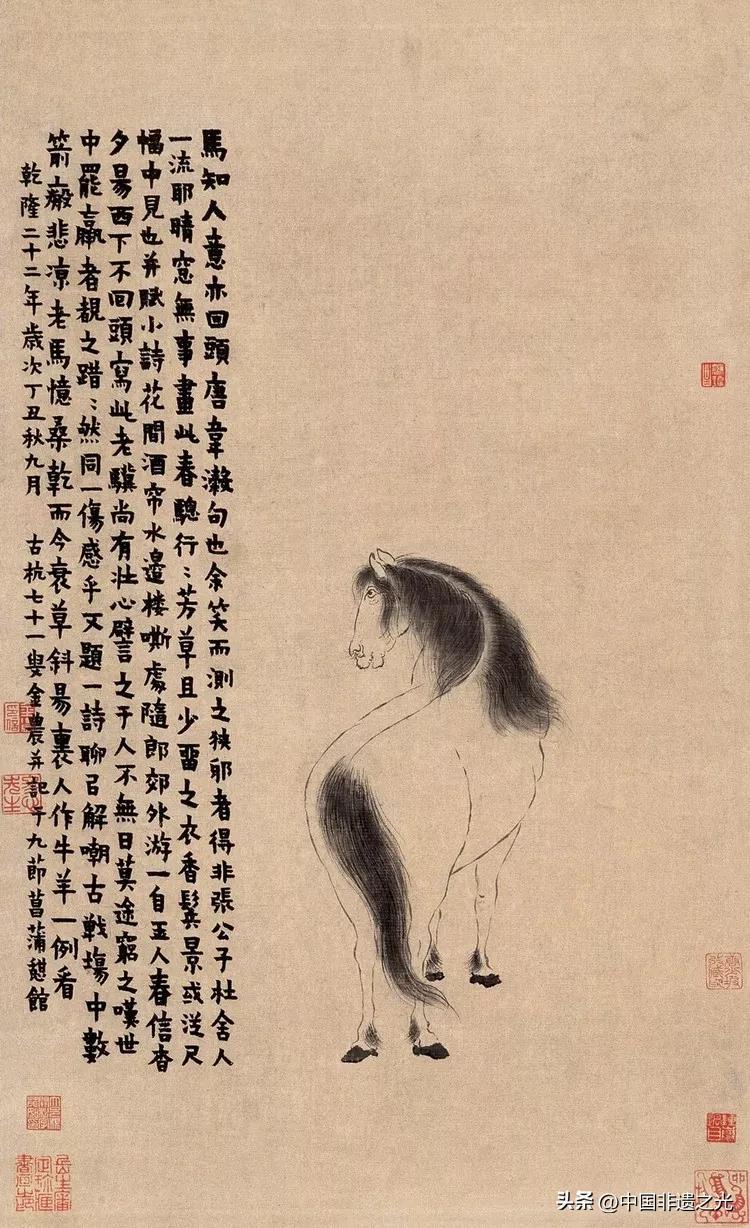 馬知人意亦回頭唐韋澉句也余笑而測之狹邪者得非張公子杜舍人
一流耶晴窓無事畫此春驄行：芳草且少畱之衣香鬂景或從尺
幅中見也并賦小詩花間酒帘水邊楼嘶處隨郎郊外游一自玉人春信杳
夕昜西下不回頭寫此老驥尚有壮心譬之于人不無日莫途窮之嘆世
中罷羸者覩之踖：然同一傷感乎又題一詩聊㠯解嘲古戰塲中數
箭瘢悲凉老馬憶桑乾而今衰草斜昜裏人作牛羊一例看
乾隆二十二年歲次丁丑秋九月 古杭七十一叟金農并記于九節菖蒲憩館
头条 @中国非遗之光